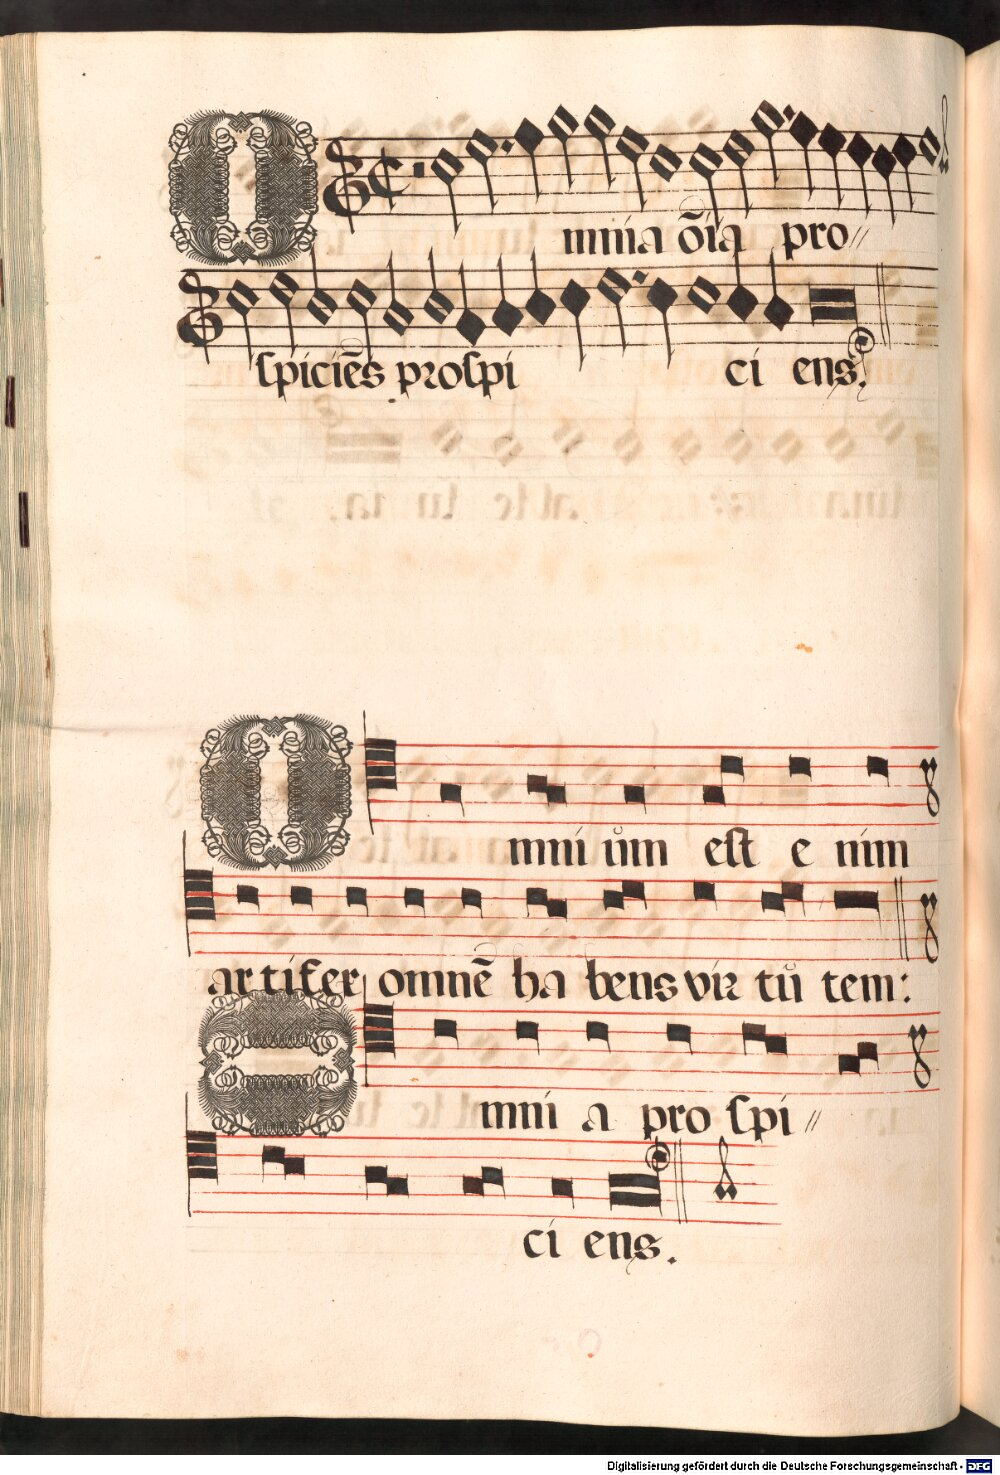 Omnia oīa pro//
spiciēs prospi ci ens.
Omni ům est e nim
ar tifex omnē ha bens vir tů tem:
Omni a pro spi //
ci ens.
Digitalisierung gefördert durch die Deutsche Forschungsgemeinschaft - DFG